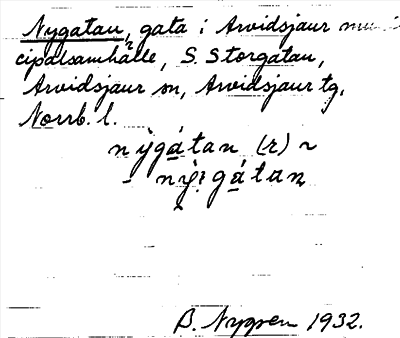 Nygatan, gata i Arvidsjaur muni-
cipalsamhälle, S. Storgatan,
Arvidsjaur sn, Arvidsjaur tg,
Norrb. l.
nỳgátan (r) ~
- nỳi̯gátan
B. Nygren 1932.